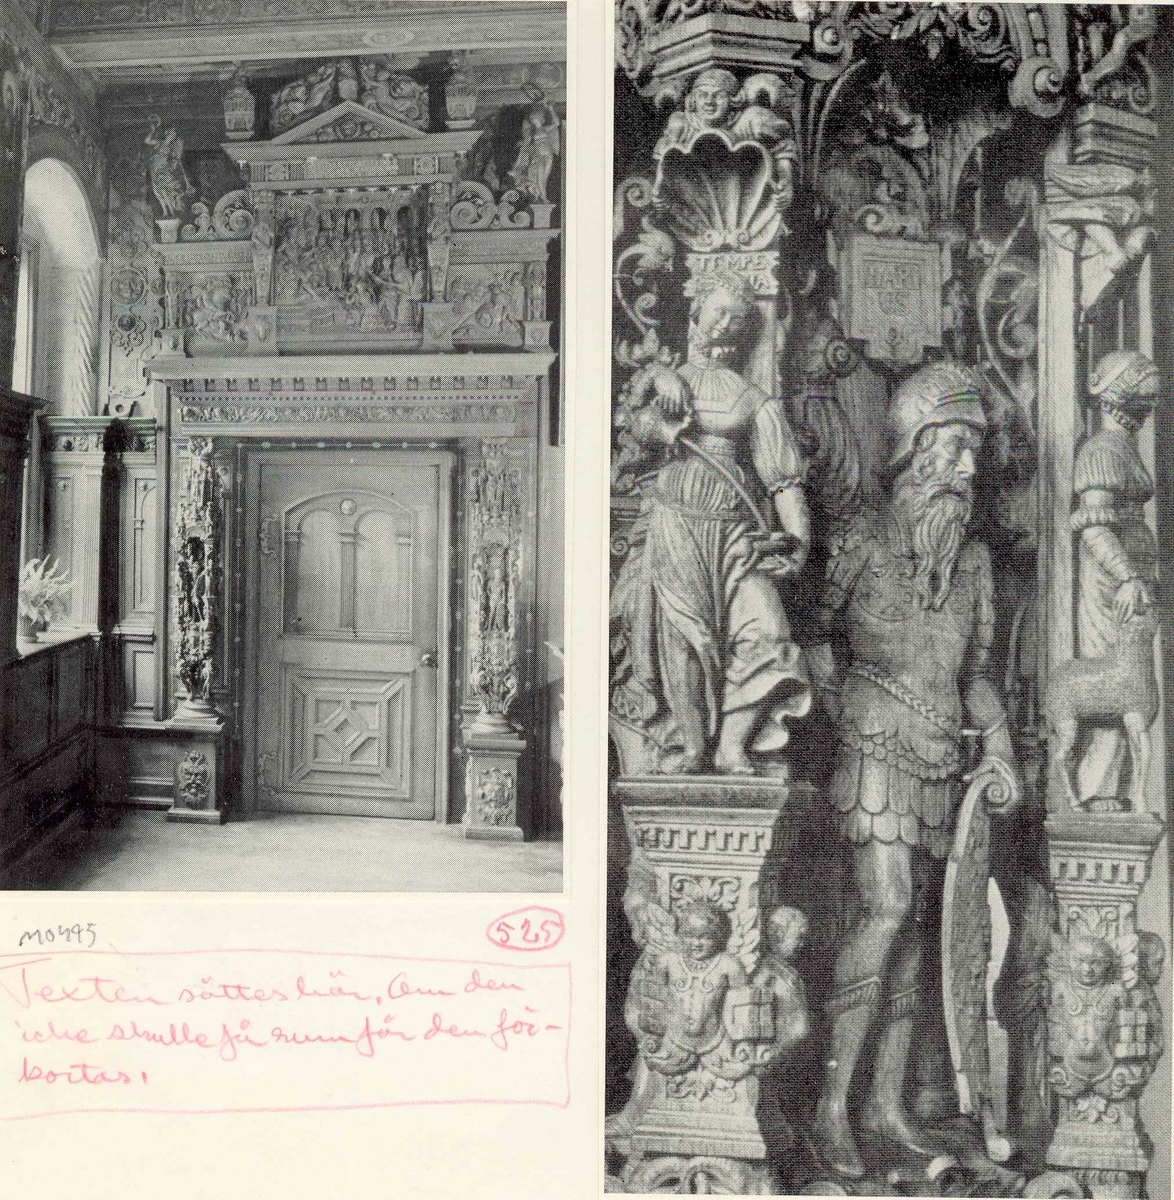 TEMPE
MARI
US
525
Texten sättes här. Om den
icke skulle få rum får den för-
kortas.